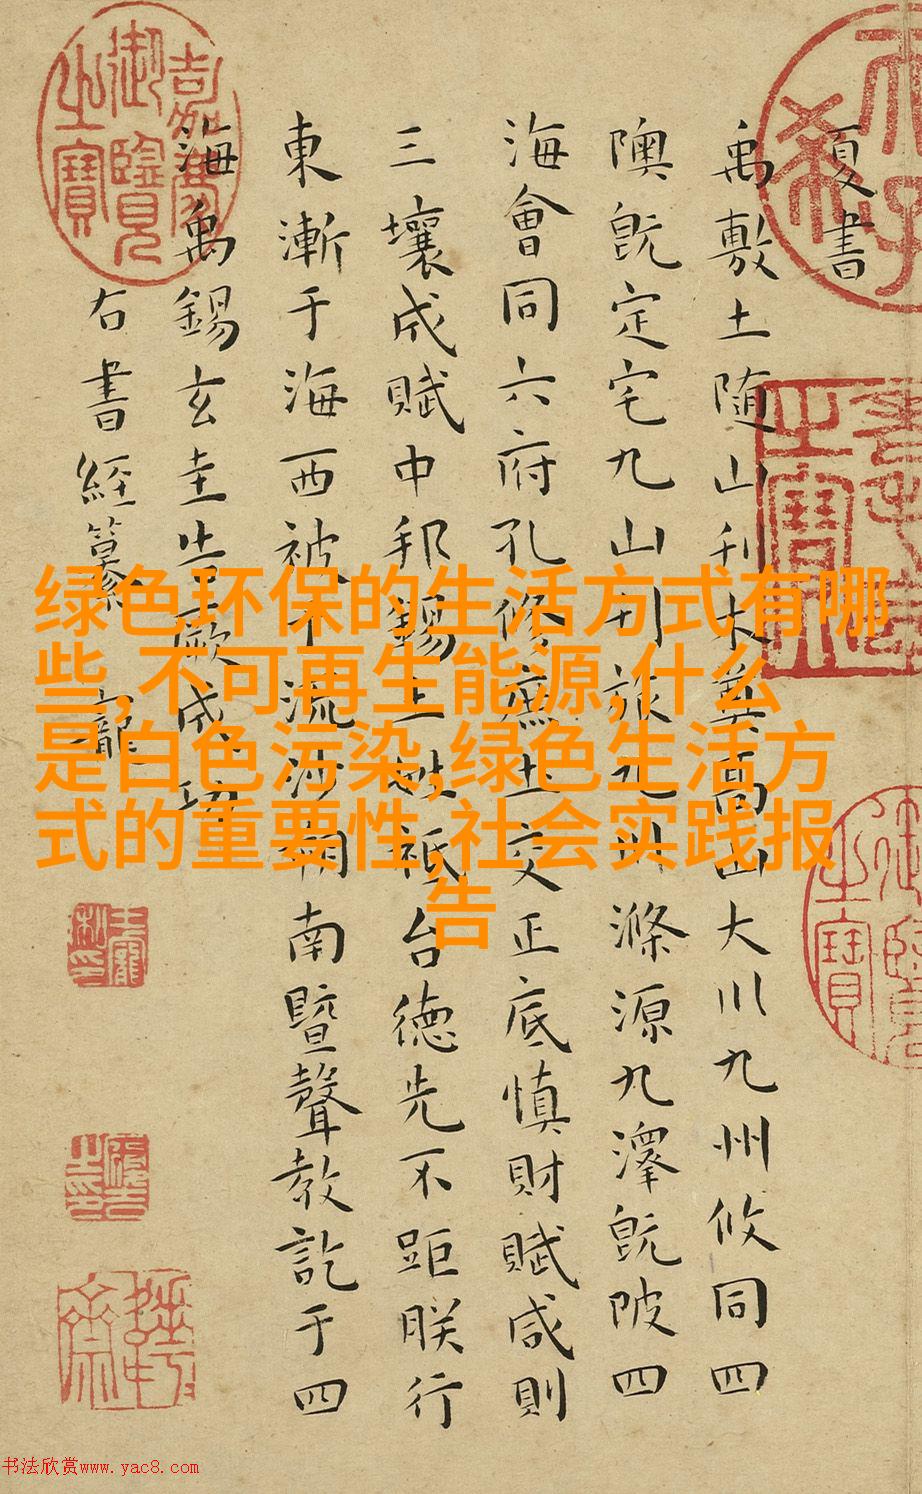 夏書
禹敷土随山刊木奠高山大川九州攸同四
隩既定宅九山刊旅九川滌源九澤既陂四
海會同六府孔修庶土交正底慎財賦咸則
三壤成賦中邦錫土姓祗台德先不距朕行
東漸于海西被于流沙朔南暨聲教訖于四
海禹錫玄圭告厥成功
右書經纂 寵
嘉慶御覽之寶
绿色环保的生活方式有哪
些,不可再生能源,什么
是白色污染,绿色生活方
式的重要性,社会实践报
告
书法欣赏www.yac8.com